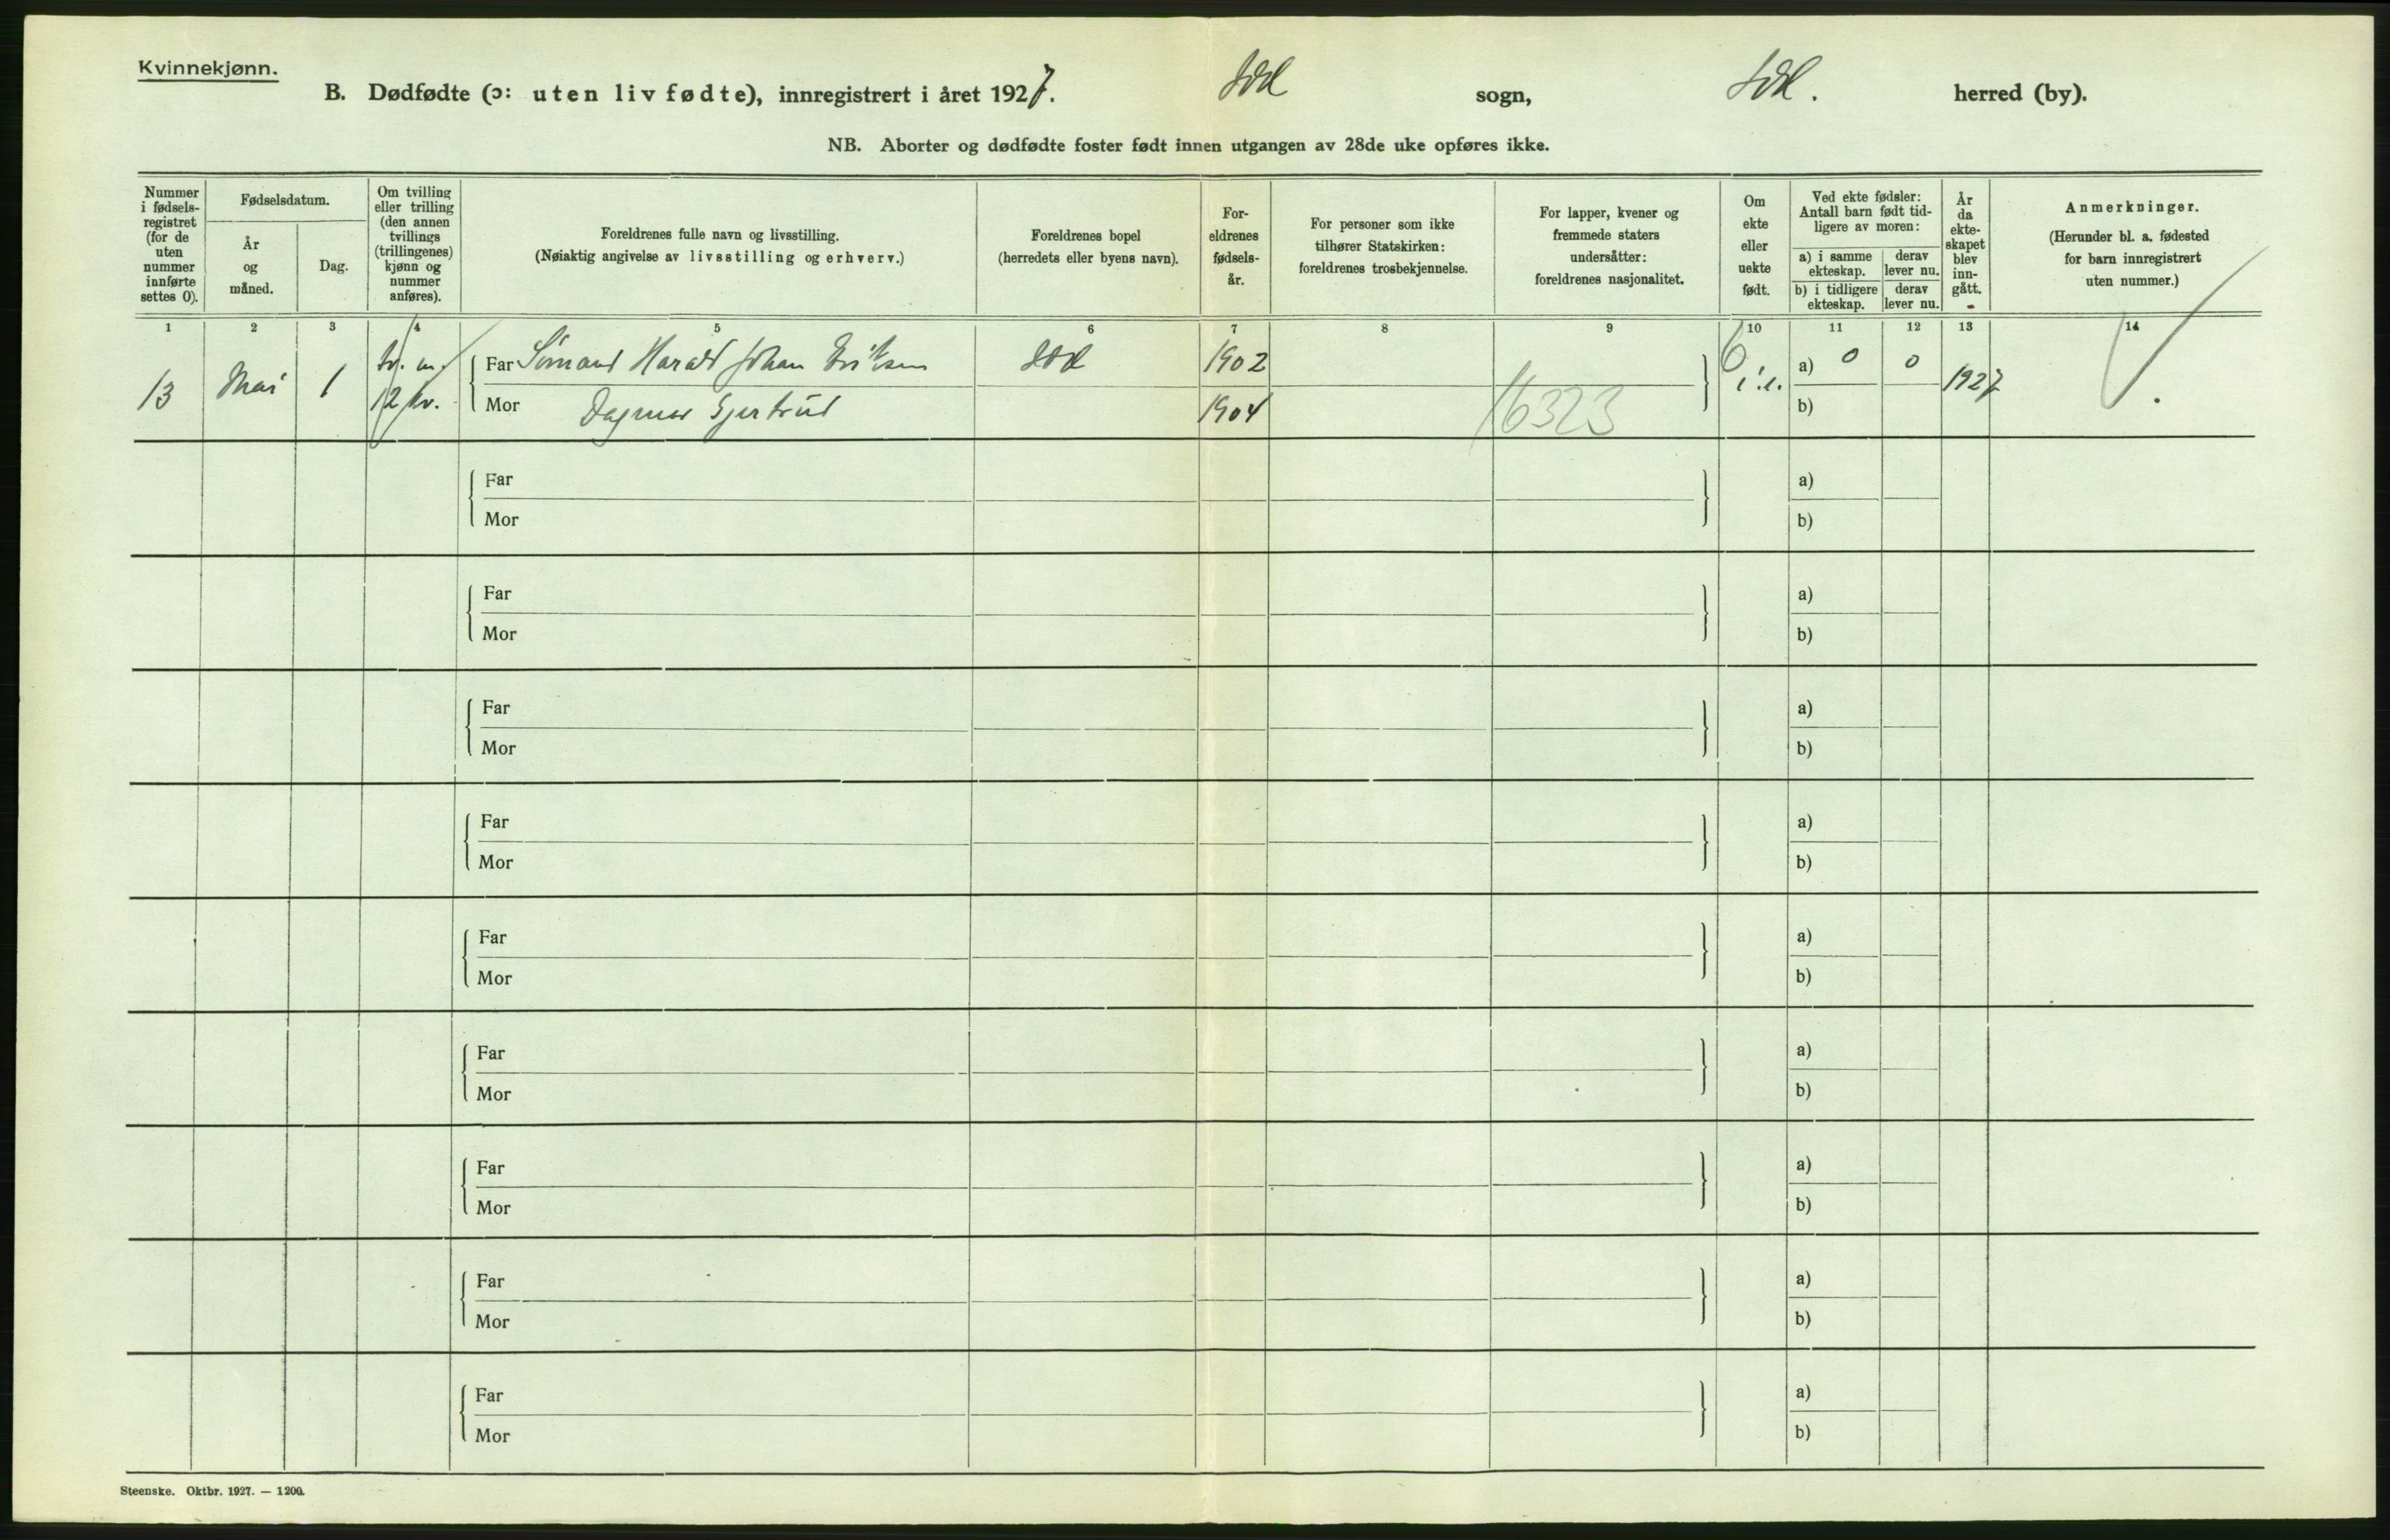 Kvinnekjønn.
B. Dødfødte (ɔ: uten liv fødte), innregistrert i året 1927. Idd sogn, Idd. herred (by).
NB. Aborter og dødfødte foster født innen utgangen av 28de uke opføres ikke.
Nummer i fødsels- registret (for de uten nummer innførte settes 0).
Fødselsdatum.
År og måned.
Dag.
Om tvilling eller trilling (den annen tvillings (trillingenes) kjønn og nummer anføres).
Foreldrenes fulle navn og livsstilling.
(Nøiaktig angivelse av livsstilling og erhverv.)
Foreldrenes bopel
(herredets eller byens navn).
For- eldrenes fødsels- år.
For personer som ikke tilhører Statskirken: foreldrenes trosbekjennelse.
For lapper, kvener og fremmede staters undersåtter: foreldrenes nasjonalitet.
Om ekte eller uekte født.
Ved ekte fødsler: Antall barn født tid- ligere av moren:
a) i samme ekteskap.
derav lever nu.
b) i tidligere ekteskap.
derav lever nu.
År da ekte- skapet blev inn- gått.
Anmerkninger.
(Herunder bl. a. fødested for barn innregistrert uten nummer.)
1 2 3 4 5 6 7 8 9 10 11 12 13 14
13 Mai 1 tv. m. 12 kv. Far Sømand Harald Johan Eriksen Idd 1902 a) 0 0 1927
Mor Dagmar Gjertrud 1904 16323 b)
Far a)
Mor b)
Far a)
Mor b)
Far a)
Mor b)
Far a)
Mor b)
Far a)
Mor b)
Far a)
Mor b)
Far a)
Mor b)
Far a)
Mor b)
Far a)
Mor b)
Steenske. Oktbr. 1927. — 1200.